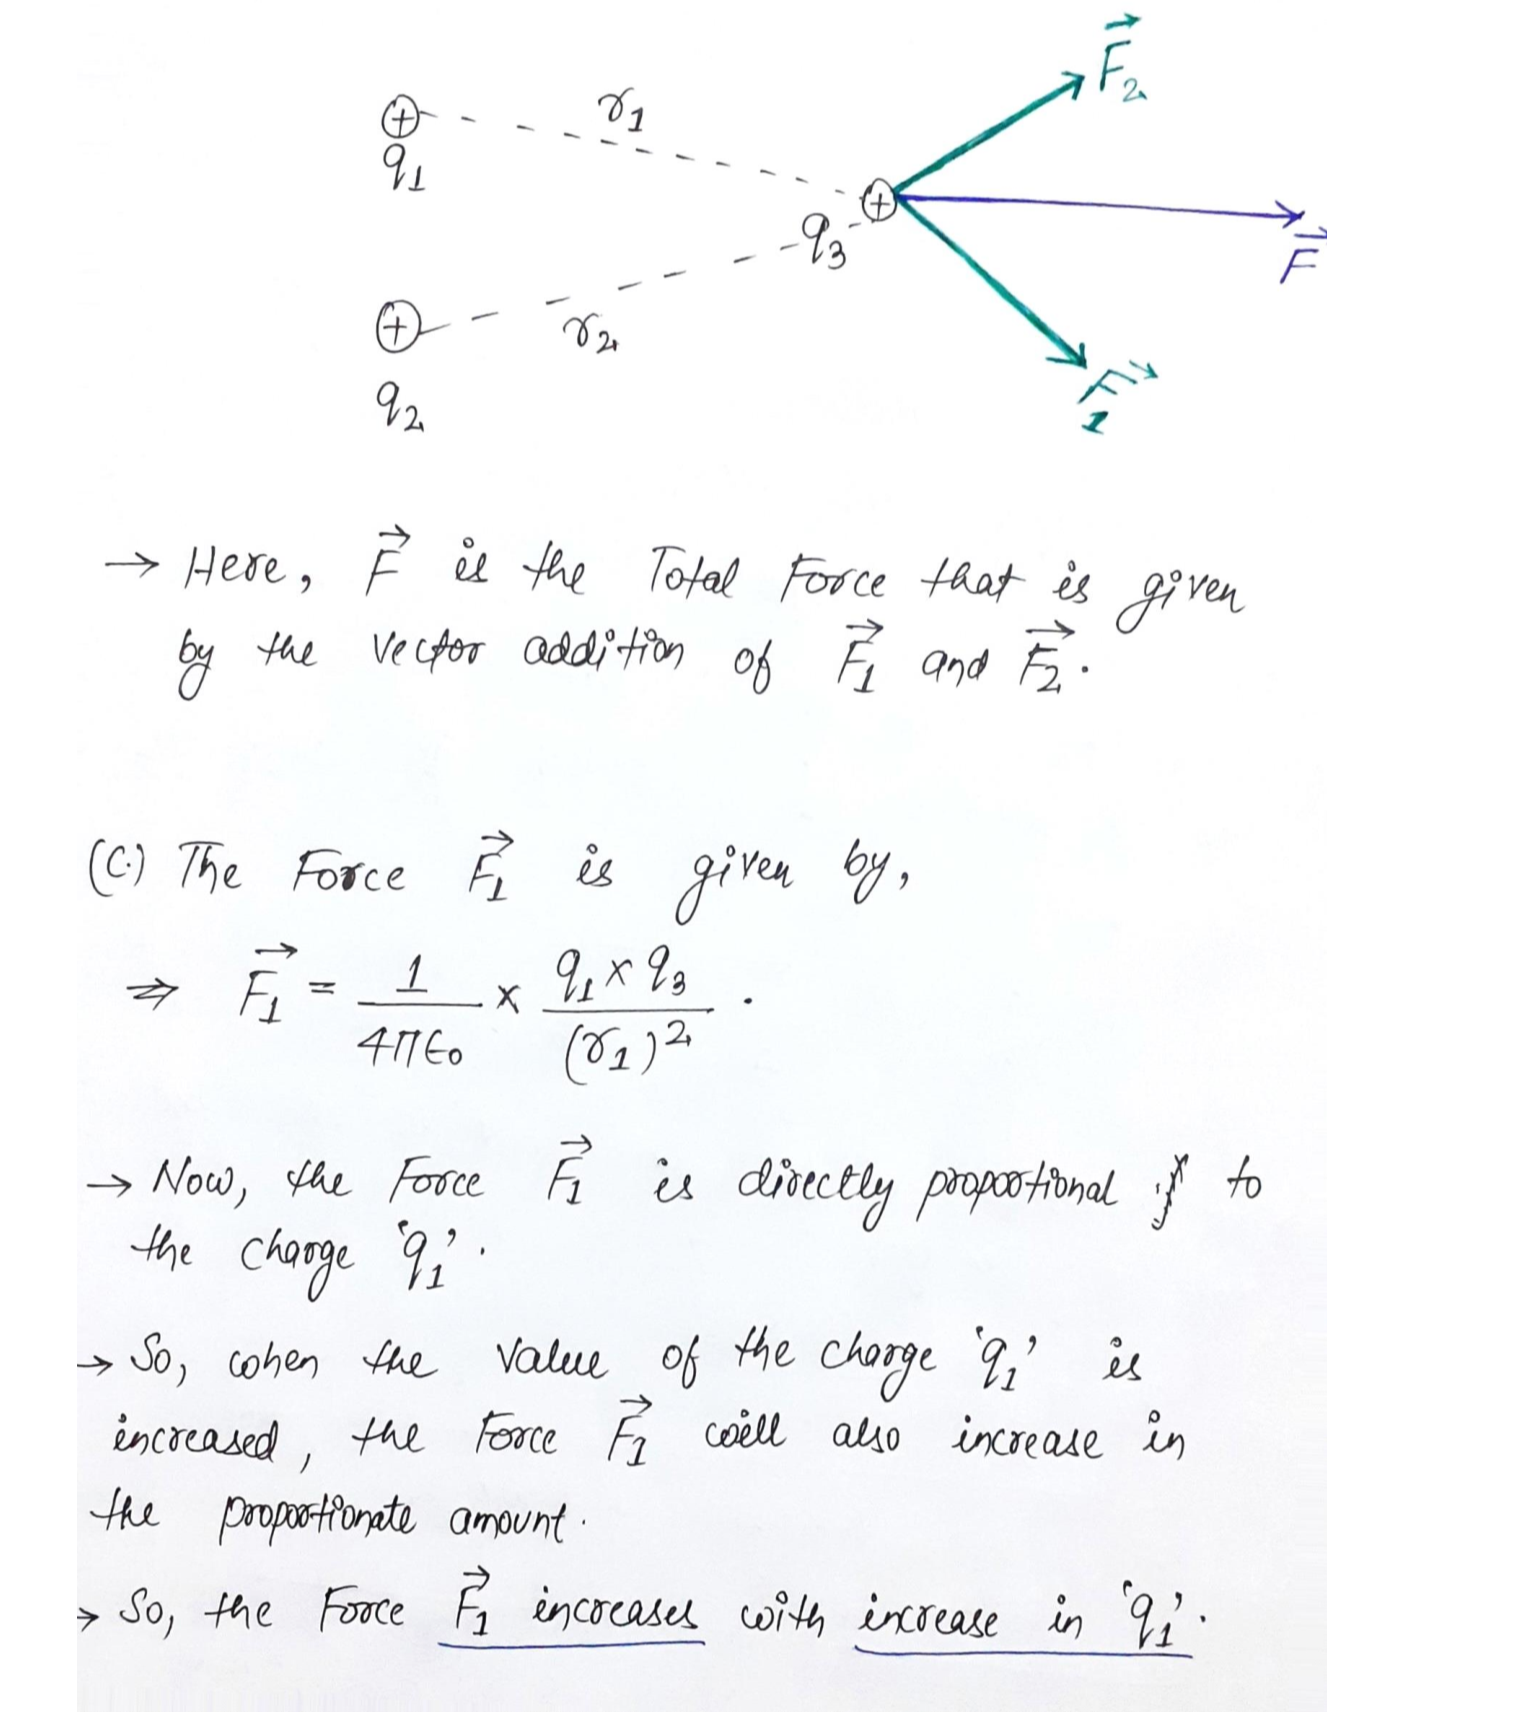 F₂
r₁
q₁
q₃
F
r₂
q₂
F₁
→ Here, F⃗ is the Total Force that is given
by the vector addition of F⃗₁ and F⃗₂.
(C.) The Force F⃗₁ is given by,
⇒ F⃗₁ = 1/4πϵ₀ × q₁ × q₃/(r₁)² .
→ Now, the Force F⃗₁ is directly proportional to
the charge 'q₁'.
→ So, when the value of the charge 'q₁' is
increased, the Force F⃗₁ will also increase in
the proportionate amount.
→ So, the Force F⃗₁ increases with increase in 'q₁'.